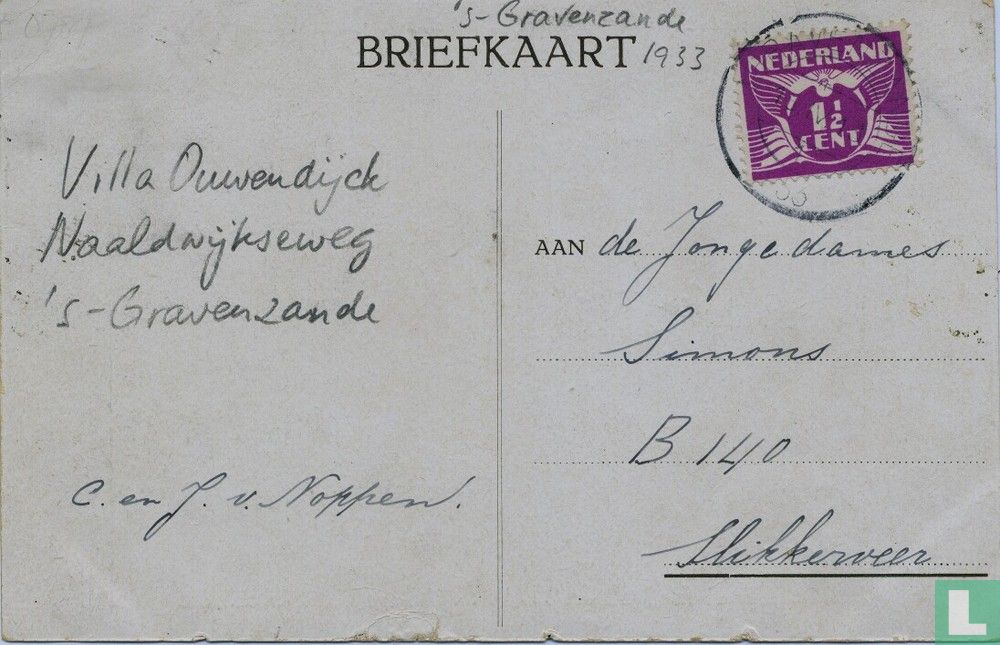 's-Gravenzande
BRIEFKAART 1933
NEDERLAND
1½
CENT
33
Villa Ouwendijck
Naaldwijkseweg
's-Gravenzande
AAN de Jongedames
Simons
B 140
Slikkerveer
C. en J. v. Noppen.
L